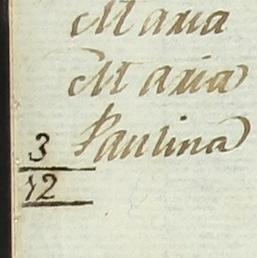 Maria
Maria
3 Paulina
12